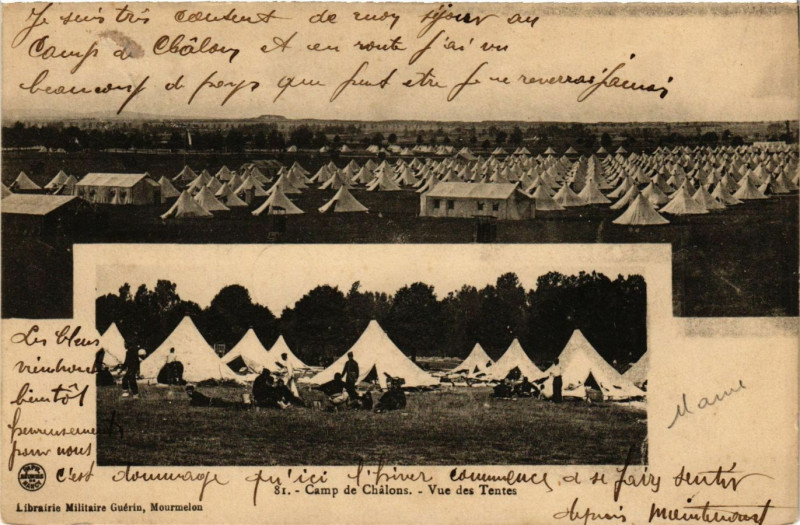 Je suis très content de mon séjour au
Camp de Châlons et en route j'ai vu
beaucoup de pays que peut etre je ne reverrai jamais
Les bleus
viendront
bientôt
heureusement
pour nous
c'est dommage qu'ici l'hiver commence a se faire sentir
depuis maintenant
Marne
81. - Camp de Châlons. - Vue des Tentes
Librairie Militaire Guérin, Mourmelon